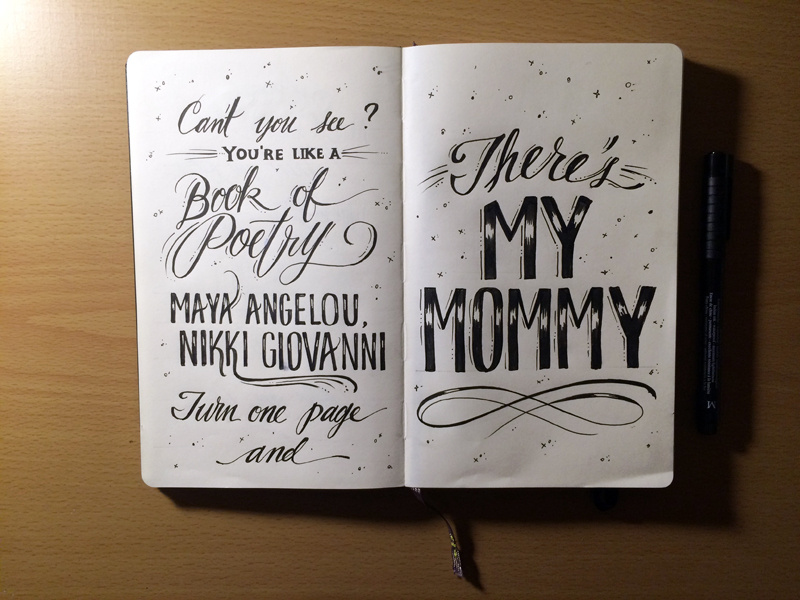 Can't you see?
YOU'RE LIKE A
Book of
Poetry
MAYA ANGELOU,
NIKKI GIOVANNI
Turn one page
and
There's
MY
MOMMY
M